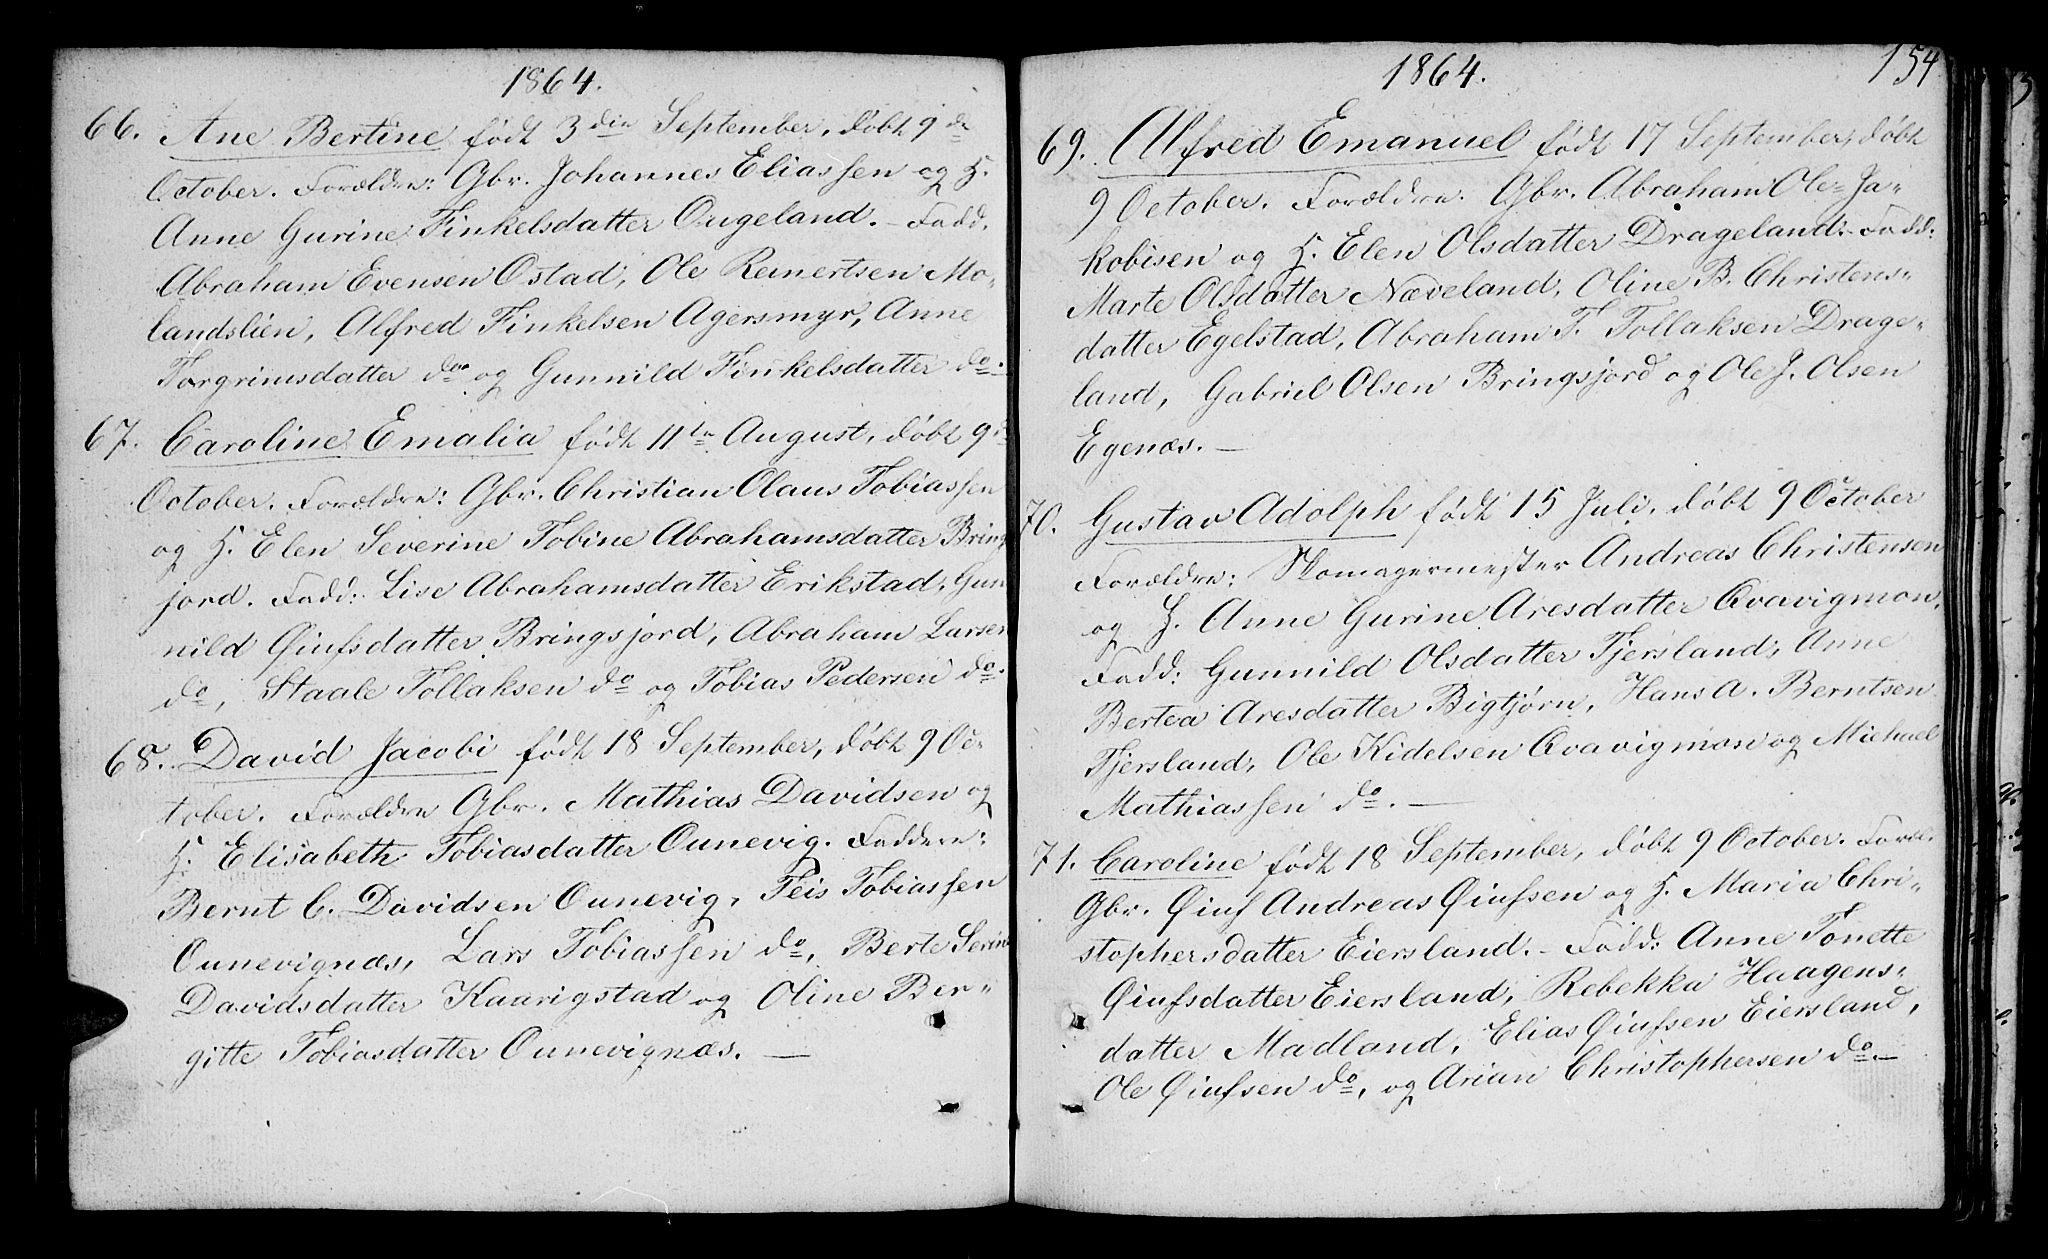 1864.
66. Ane Bertine født 3die September, døbt 9de
October. Forældre: Gbr. Johannes Eliassen og H.
Anne Gurine Finkelsdatter Ougeland. - Fadd.
Abraham Evensen Ostad, Ole Reinertsen Mo-
landslien, Alfred Finkelsen Agersmyr, Anne
Torgrimsdatter do og Gunnild Finkelsdatter do.
67. Caroline Emalia født 11te August, døbt 9de
October. Forældre: Gbr. Christian Olaus Tobiassen
og H. Elen Severine Tobine Abrahamsdatter Brings
jord. Fadd: Lise Abrahamsdatter Erikstad, Gun
nild Qiufsdatter Bringsjord, Abraham Larsen
do, Staale Tollaksen do og Tobias Pedersen do.
68. David Jacobi født 18 September, døbt 9 Oc-
tober. Forældre Gbr. Mathias Davidsen og
H. Elisabeth Tobiasdatter Ounevig. Faddere:
Bernt C. Davidsen Ounevig, Teis Tobiassen
Ounevignæs, Lars Tobiassen do, Berte Serine
Davidsdatter Kaarigstad og Oline Ber-
gitte Tobiasdatter Ounevignæs. —
1864.
154
69. Alfred Emanuel født 17 September, døbt
9 October. Forældre. Gbr. Abraham Ole Ja-
kobisen og H. Elen Olsdatter Drageland. Fadd:
Marte Olsdatter Næveland, Oline B. Christens-
datter Egelstad, Abraham T. Tollaksen Drage-
land, Gabriel Olsen Bringsjord og Ole J. Olsen
Egenæs. —
70. Gustav Adolph født 15 Juli, døbt 9 October
Forældre: Skomagermester Andreas Christensen
og H. Anne Gurine Aresdatter Qvavigmon,
Fadd: Gunnild Olsdatter Tjersland, Anne
Bertea Aresdatter Bigtjørn, Hans A. Berntsen
Tjersland, Ole Kidelsen Qvavigmon og Michael
Mathiassen do. —
71. Caroline født 18 September, døbt 9 October. Foræl.
Gbr. Qiuf Andreas Qiufsen og H. Maria Chri-
stophersdatter Eiersland. - Fadd: Anne Tonette
Qiufsdatter Eiersland, Rebekka Haagens-
datter Madland, Elias Qiufsen Eiersland,
Ole Qiufsen do, og Arian Christophersen do. —